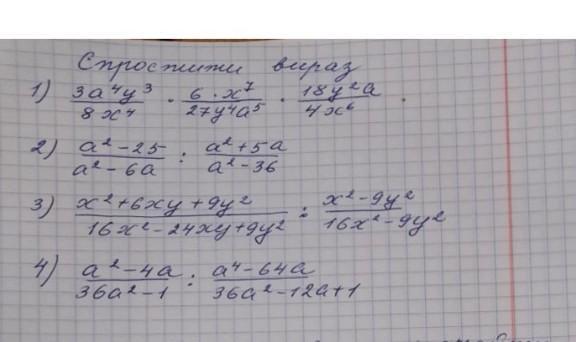 Спростити вираз
1) 3a⁴y³/8x⁴ · 6·x⁷/27y⁴a⁵ · 18y²a/4x⁶ .
2) a²-25/a²-6a : a²+5a/a²-36
3) x²+6xy+9y²/16x²-24xy+9y² : x²-9y²/16x²-9y²
4) a²-4a/36a²-1 : a⁴-64a/36a²-12a+1